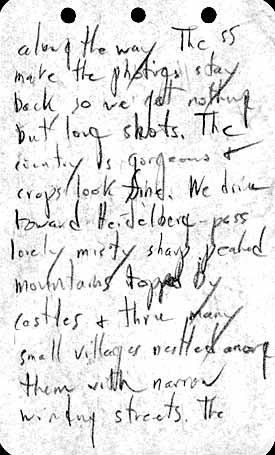 along the way. The SS
make the photogs stay
back so we get nothing
but long shots. The
country is gorgeous &
crops look fine. We drive
toward Heidelberg - pass
lovely misty sharp peaked
mountains topped by
castles & thru many
small villages nestled among
them with narrow
winding streets. The